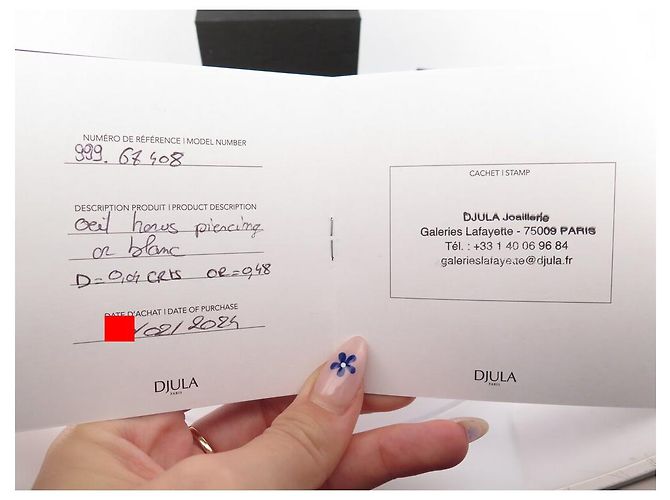 NUMÉRO DE RÉFÉRENCE I MODEL NUMBER
999. 67408
DESCRIPTION PRODUIT I PRODUCT DESCRIPTION
oeil horus piercing
or blanc
D=0,04 CRTS OR=0,48
DATE D'ACHAT I DATE OF PURCHASE
/02/2024
DJULA
PARIS
CACHET I STAMP
DJULA Joaillerie
Galeries Lafayette - 75009 PARIS
Tél. : +33 1 40 06 96 84
galerieslafayette@djula.fr
DJULA
PARIS